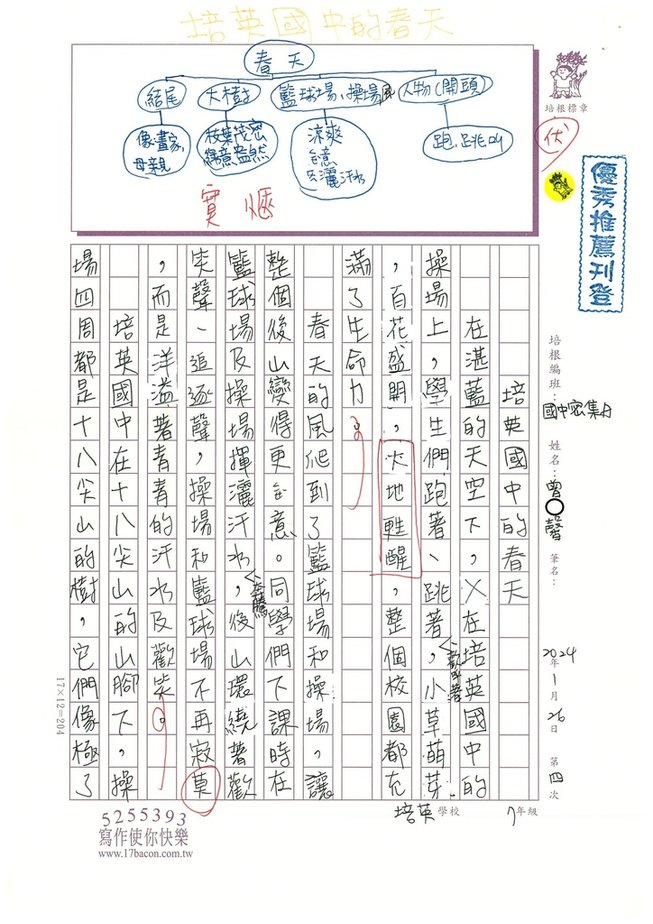 培英國中的春天
春天
結尾
大樹
籃球場、操場
人物(開頭)
像畫家,
母親
枝葉茂密
綠意盎然
涼爽
揮灑汗水
跑、跳
實
愜
伏
培根標章
優秀推薦刊登
培根編班:國中密集A
姓名:曾○馨
筆名:
2024年1月26日 第四次
培英國中的春天
在湛藍的天空下,在培英國中的
操場上,學生們跑著、跳著,歡叫著小草萌芽
,百花盛開,大地甦醒,整個校園都充
滿了生命力。
春天的風爬到了籃球場和操場,讓
整個後山變得更合意。同學們下課時在
籃球場及操場揮灑汗水,奔騰後山環繞著歡
笑聲、追逐聲,操場和籃球場不再寂莫
,而是洋溢著青青的汗水及歡笑。
培英國中在十八尖山的山腳下,操
場四周都是十八尖山的樹,它們像極了
17×12=204
5255393
寫作使你快樂
www.17bacon.com.tw
培英學校
7年級